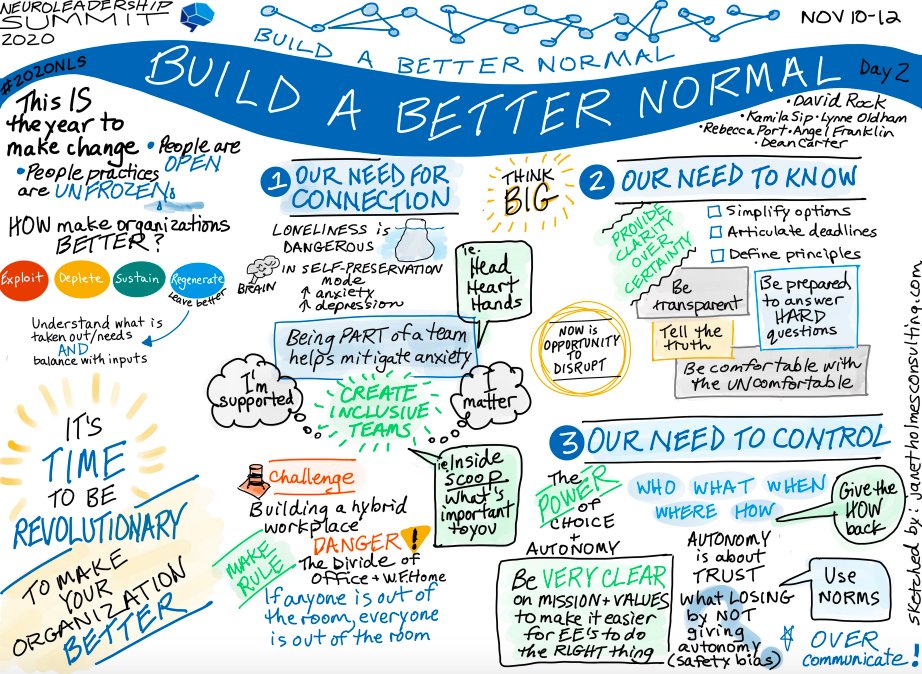 NEUROLEADERSHIP
SUMMIT
2020
NOV 10-12
BUILD A BETTER NORMAL
#2020NLS
BUILD A BETTER NORMAL
Day 2
• David Rock
• Kamila Sip • Lynne Oldham
• Rebecca Port • Angel Franklin
• Dean Carter
This IS
the year to
make change
• People are
OPEN
• People practices
are UNFROZEN
HOW make organizations
BETTER?
Exploit
Deplete
Sustain
Regenerate
Leave better
Understand what is
taken out/needs
AND
balance with inputs
IT'S
TIME
TO BE
REVOLUTIONARY
TO MAKE
YOUR
ORGANIZATION
BETTER
1 OUR NEED FOR
CONNECTION
LONELINESS is
DANGEROUS
BRAIN
IN SELF-PRESERVATION
mode
↑ anxiety
↑ depression
ie.
Head
Heart
Hands
Being PART of a team
helps mitigate anxiety
I'm
supported
CREATE
INCLUSIVE
TEAMS
I
matter
ie. Inside
scoop
what's
important
to you
Challenge
Building a hybrid
workplace
DANGER !
The Divide of
Office + W.F.Home
MAKE
RULE
If anyone is out of
the room, everyone
is out of the room
THINK
BIG
NOW is
OPPORTUNITY
TO
DISRUPT
2 OUR NEED TO KNOW
PROVIDE
CLARITY
OVER
CERTAINTY
Simplify options
Articulate deadlines
Define principles
Be
transparent
Be prepared
to answer
HARD
questions
Tell the
truth
Be comfortable with
the UNcomfortable
3 OUR NEED TO CONTROL
The
POWER
of
CHOICE
+
AUTONOMY
WHO WHAT WHEN
WHERE HOW
Give the
HOW
back
Be VERY CLEAR
on MISSION + VALUES
to make it easier
for EE's to do
the RIGHT thing
AUTONOMY
is about
TRUST
what LOSING
by NOT
giving
autonomy
(safety bias)
Use
NORMS
OVER
communicate!
sketched by: janetholmesconsulting.com